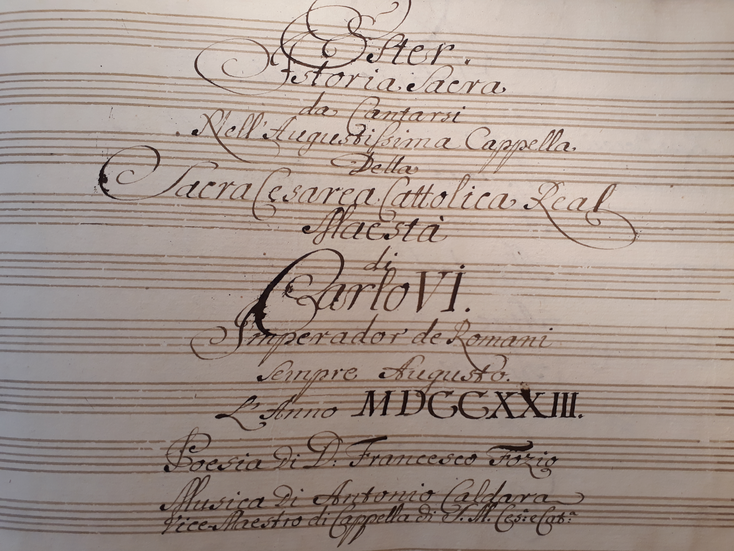 Ester.
Istoria Sacra
da Cantarsi
Nell'Augustissima Cappella.
Della
Sacra Cesarea Cattolica Real
Maestà
di
Carlo VI.
Imperador de Romani
sempre Augusto.
L'Anno MDCCXXIII.
Poesia di D. Francesco Fozio
Musica di Antonio Caldara
Vice Maestro di Cappella di S. M. Ces: e Cat: